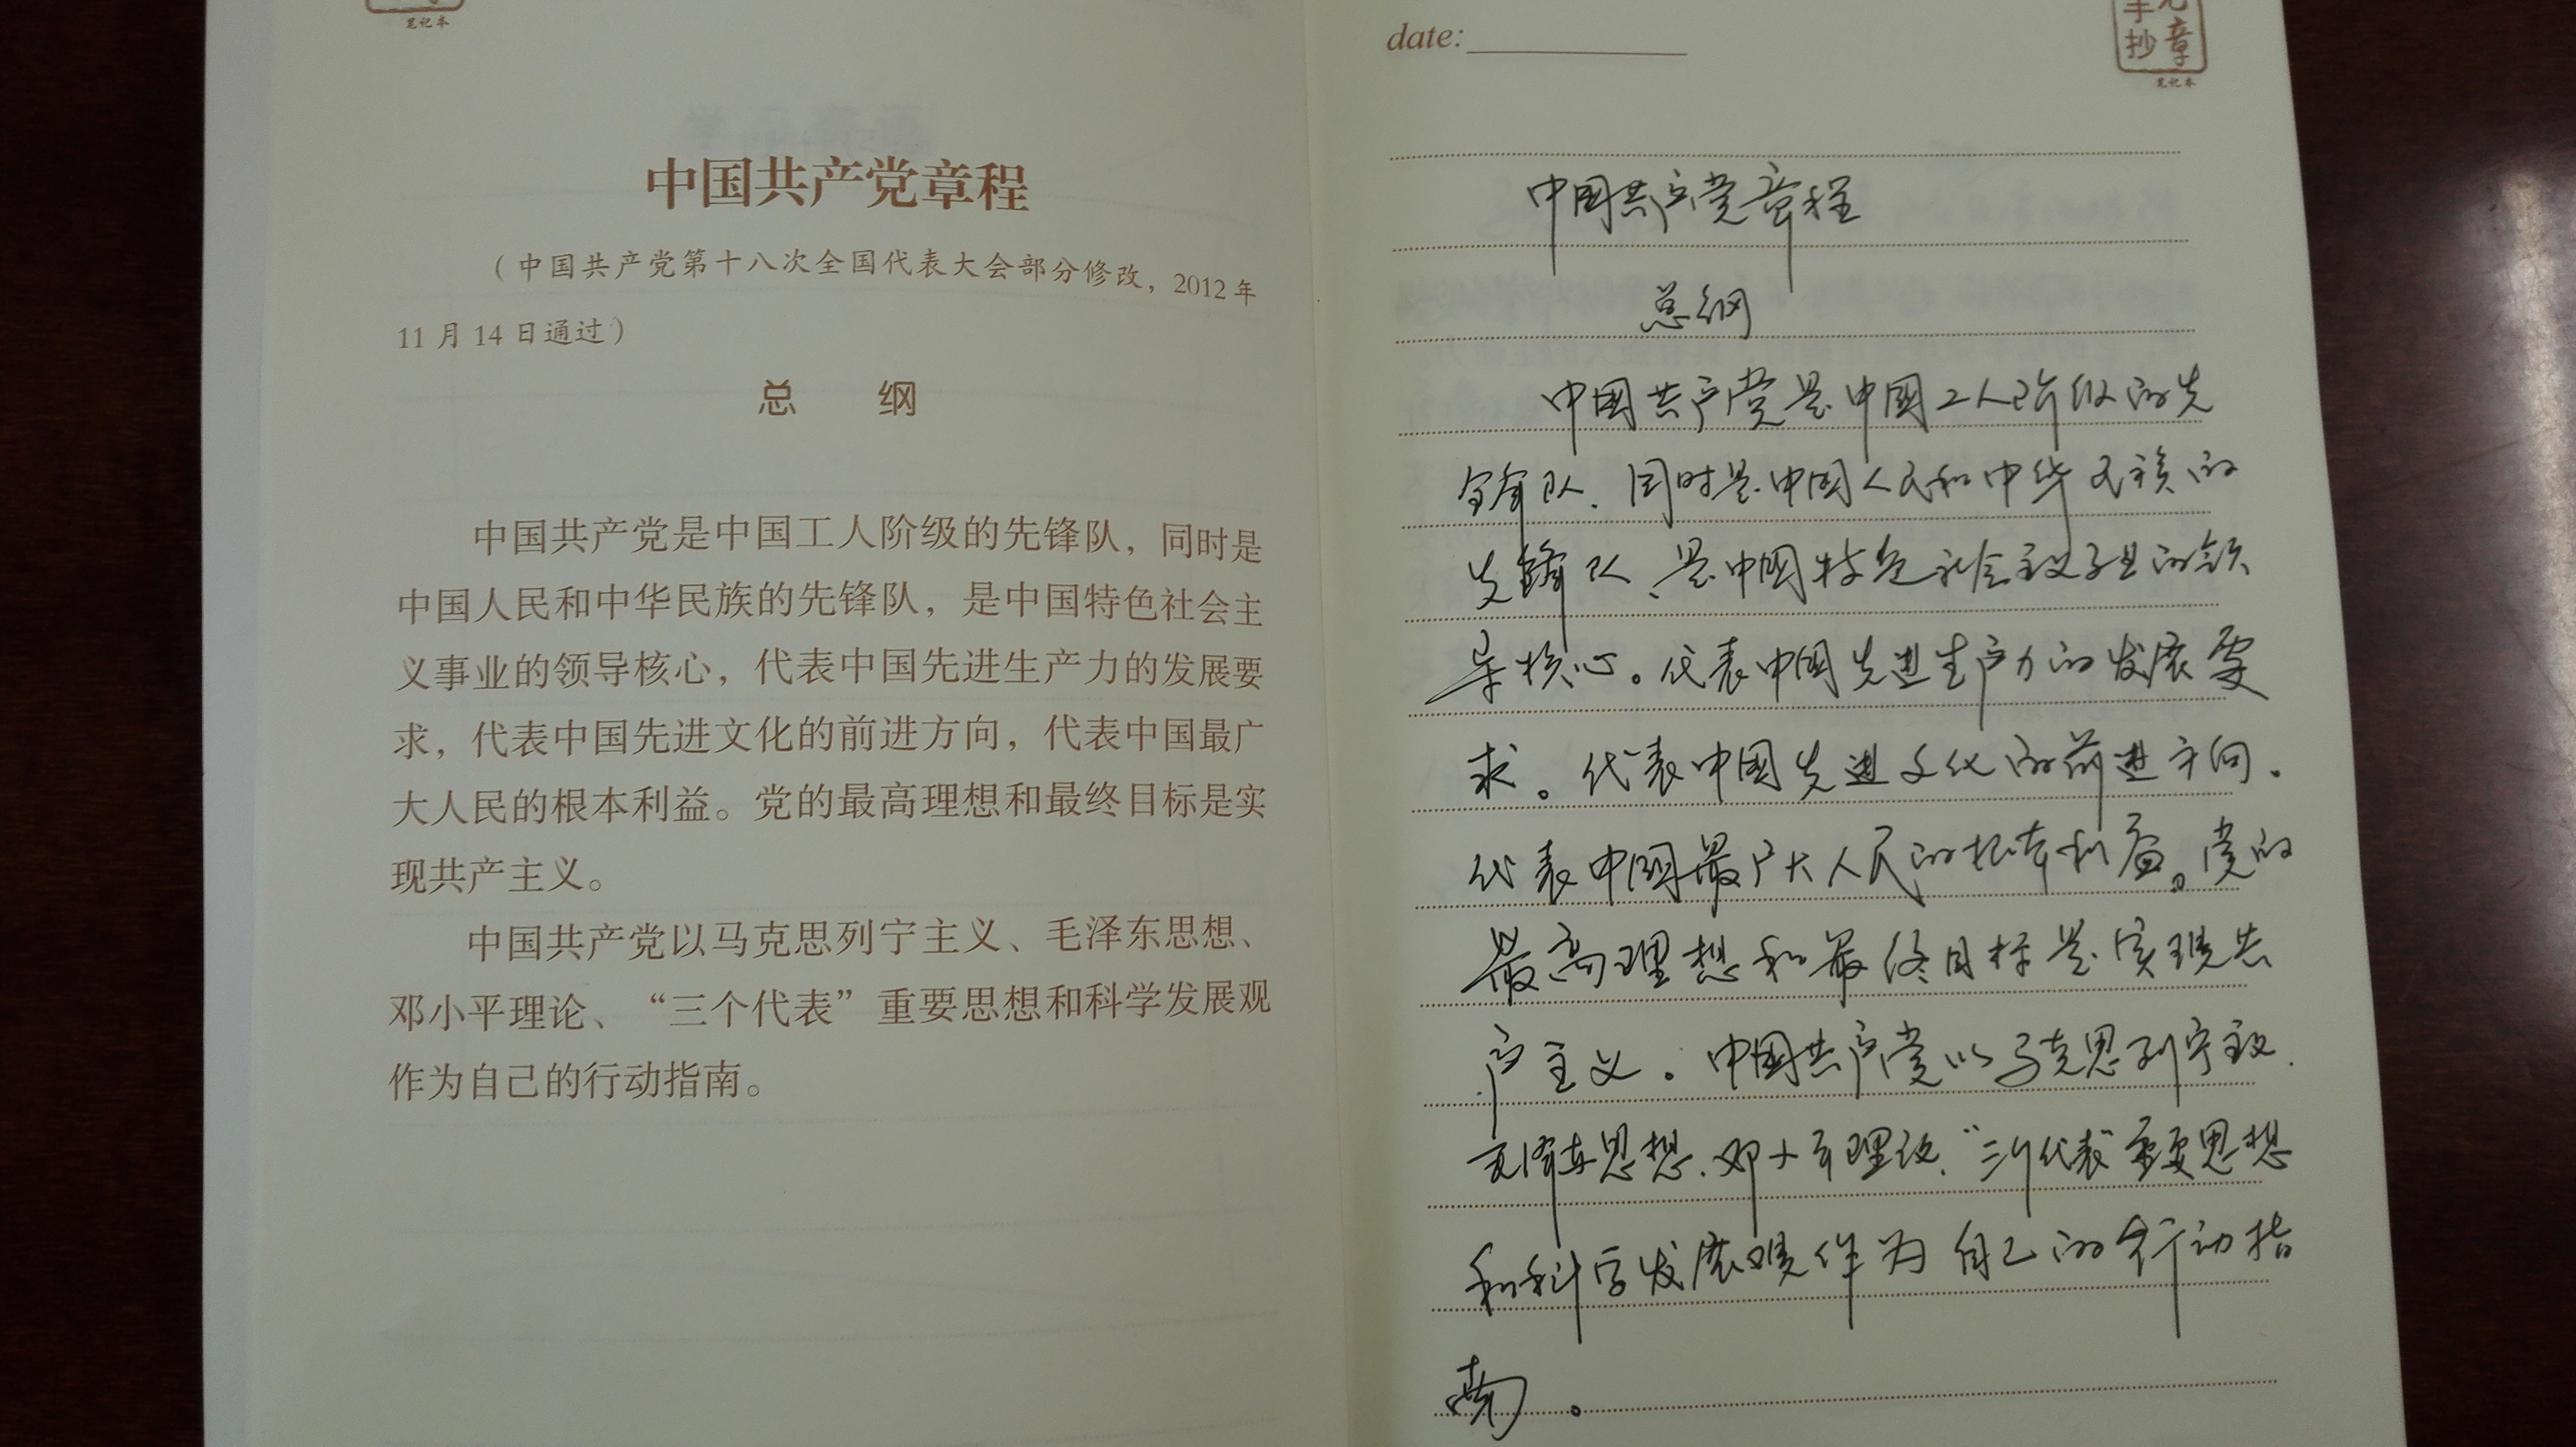 笔记本
中国共产党章程
（中国共产党第十八次全国代表大会部分修改，2012年
11月14日通过）
总 纲
中国共产党是中国工人阶级的先锋队，同时是
中国人民和中华民族的先锋队，是中国特色社会主
义事业的领导核心，代表中国先进生产力的发展要
求，代表中国先进文化的前进方向，代表中国最广
大人民的根本利益。党的最高理想和最终目标是实
现共产主义。
中国共产党以马克思列宁主义、毛泽东思想、
邓小平理论、“三个代表”重要思想和科学发展观
作为自己的行动指南。
date:
手抄
章
笔记本
中国共产党章程
总纲
中国共产党是中国工人阶级的先
锋队、同时是中国人民和中华民族的
先锋队、是中国特色社会主义事业的领
导核心。代表中国先进生产力的发展要
求。代表中国先进文化的前进方向。
代表中国最广大人民的根本利益。党的
最高理想和最终目标是实现共
产主义。中国共产党以马克思列宁主义、
毛泽东思想、邓小平理论、“三个代表”重要思想
和科学发展观作为自己的行动指
南。